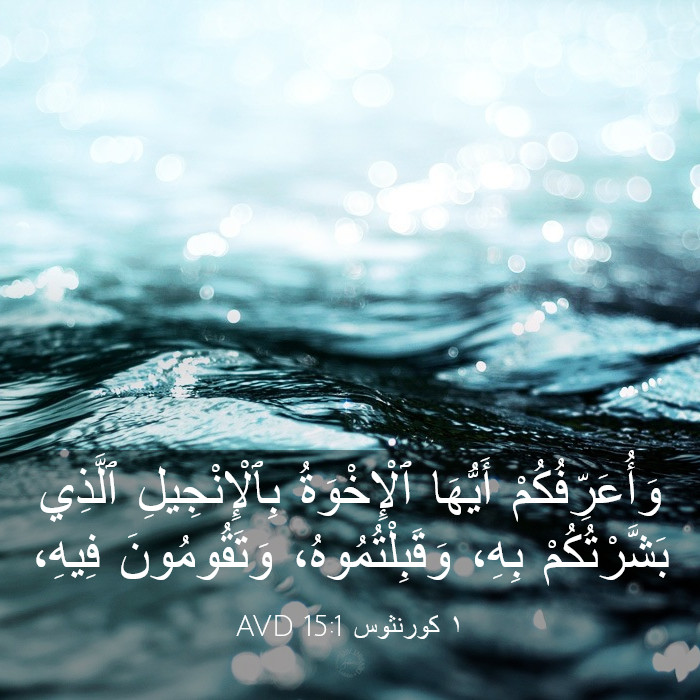 وَأُعَرِّفُكُمْ أَيُّهَا ٱلْإِخْوَةُ بِٱلْإِنْجِيلِ ٱلَّذِي
بَشَّرْتُكُمْ بِهِ، وَقَبِلْتُمُوهُ، وَتَقُومُونَ فِيهِ،
١ كورنثوس 15:1 AVD